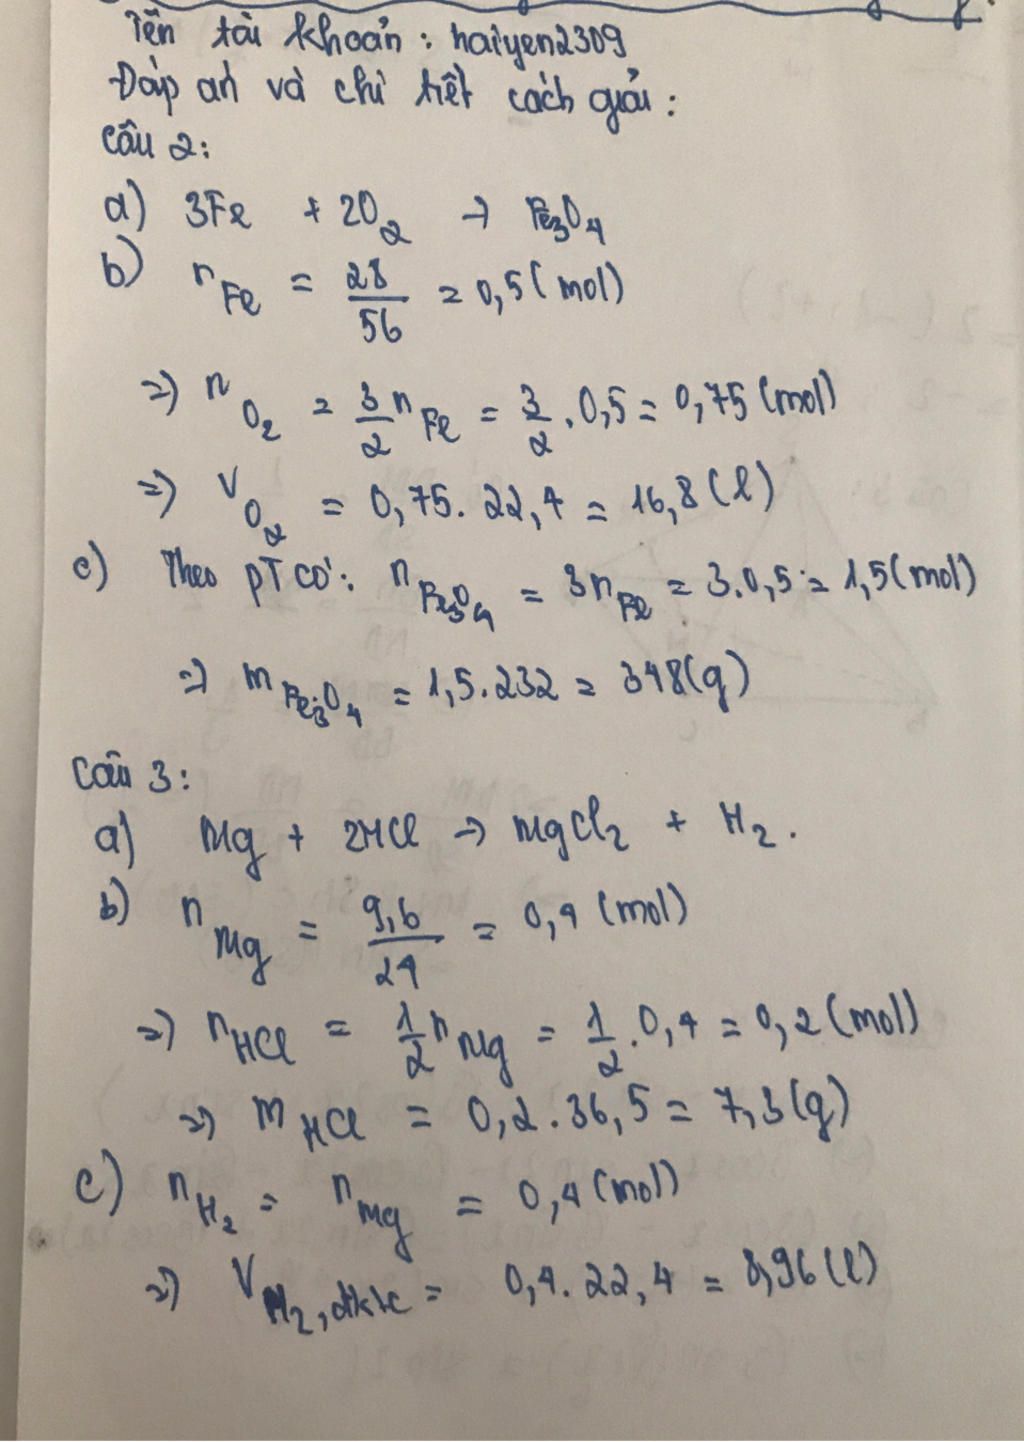 Tên tài khoản : haiyen2309
Đáp án và chi tiết cách giải :
Câu 2:
a) 3Fe + 2O2 → Fe3O4
b) nFe = 28/56 = 0,5 (mol)
=> nO2 = 3/2 nFe = 3/2 . 0,5 = 0,75 (mol)
=> VO2 = 0,75. 22,4 = 16,8 (l)
c) Theo pT có: nFe3O4 = 3nFe = 3.0,5 = 1,5 (mol)
=> mFe3O4 = 1,5.232 = 348(g)
Câu 3:
a) Mg + 2HCl → MgCl2 + H2.
b) nMg = 9,6/24 = 0,4 (mol)
=> nHCl = 1/2 nMg = 1/2 . 0,4 = 0,2 (mol)
=> mHCl = 0,2.36,5 = 7,3(g)
c) nH2 = nMg = 0,4 (mol)
=> VH2, đktc = 0,4. 22,4 = 8,96 (l)